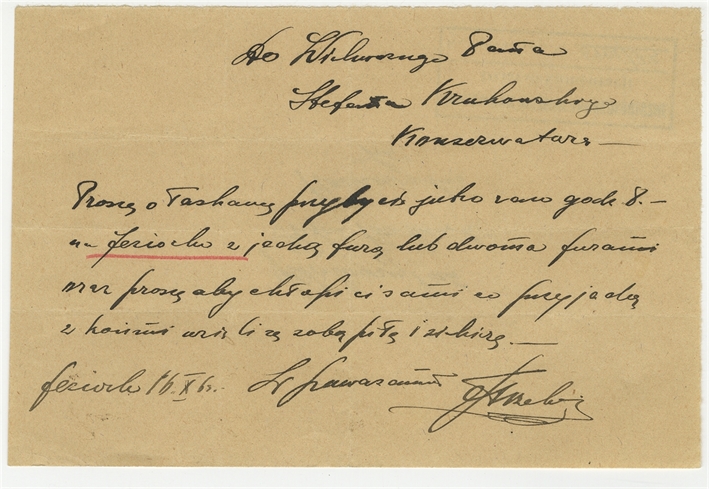 Do Wielmożnego Pana
Stefana Krukowskiego
Konserwatora —
Proszę o łaskawe przybycie jutro rano godz 8. —
na Jezioro z jedną furą lub dwoma furami
oraz proszę aby chłopi ci sami co przyjadą
z końmi wzięli ze sobą piłę i siekirę. —
16 X
Z poważaniem